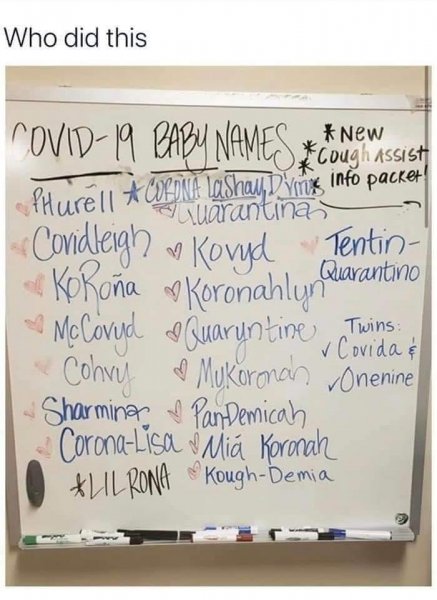 Who did this
COVID-19 BABY NAMES
* New
* Cough Assist
* info packet!
PHurell * CORONA LaShay D'Virus
Quarantina
Covidleigh Kovyd Tentin-
Quarantino
KoRoña Koronahlyn
McCovyd Quaryntine Twins:
Cohvy MyKoronah ✓ Covida &
✓ Onenine
Sharminar PanDemicah
Corona-Lisa Miá Koronah
*LIL RONA Kough-Demia